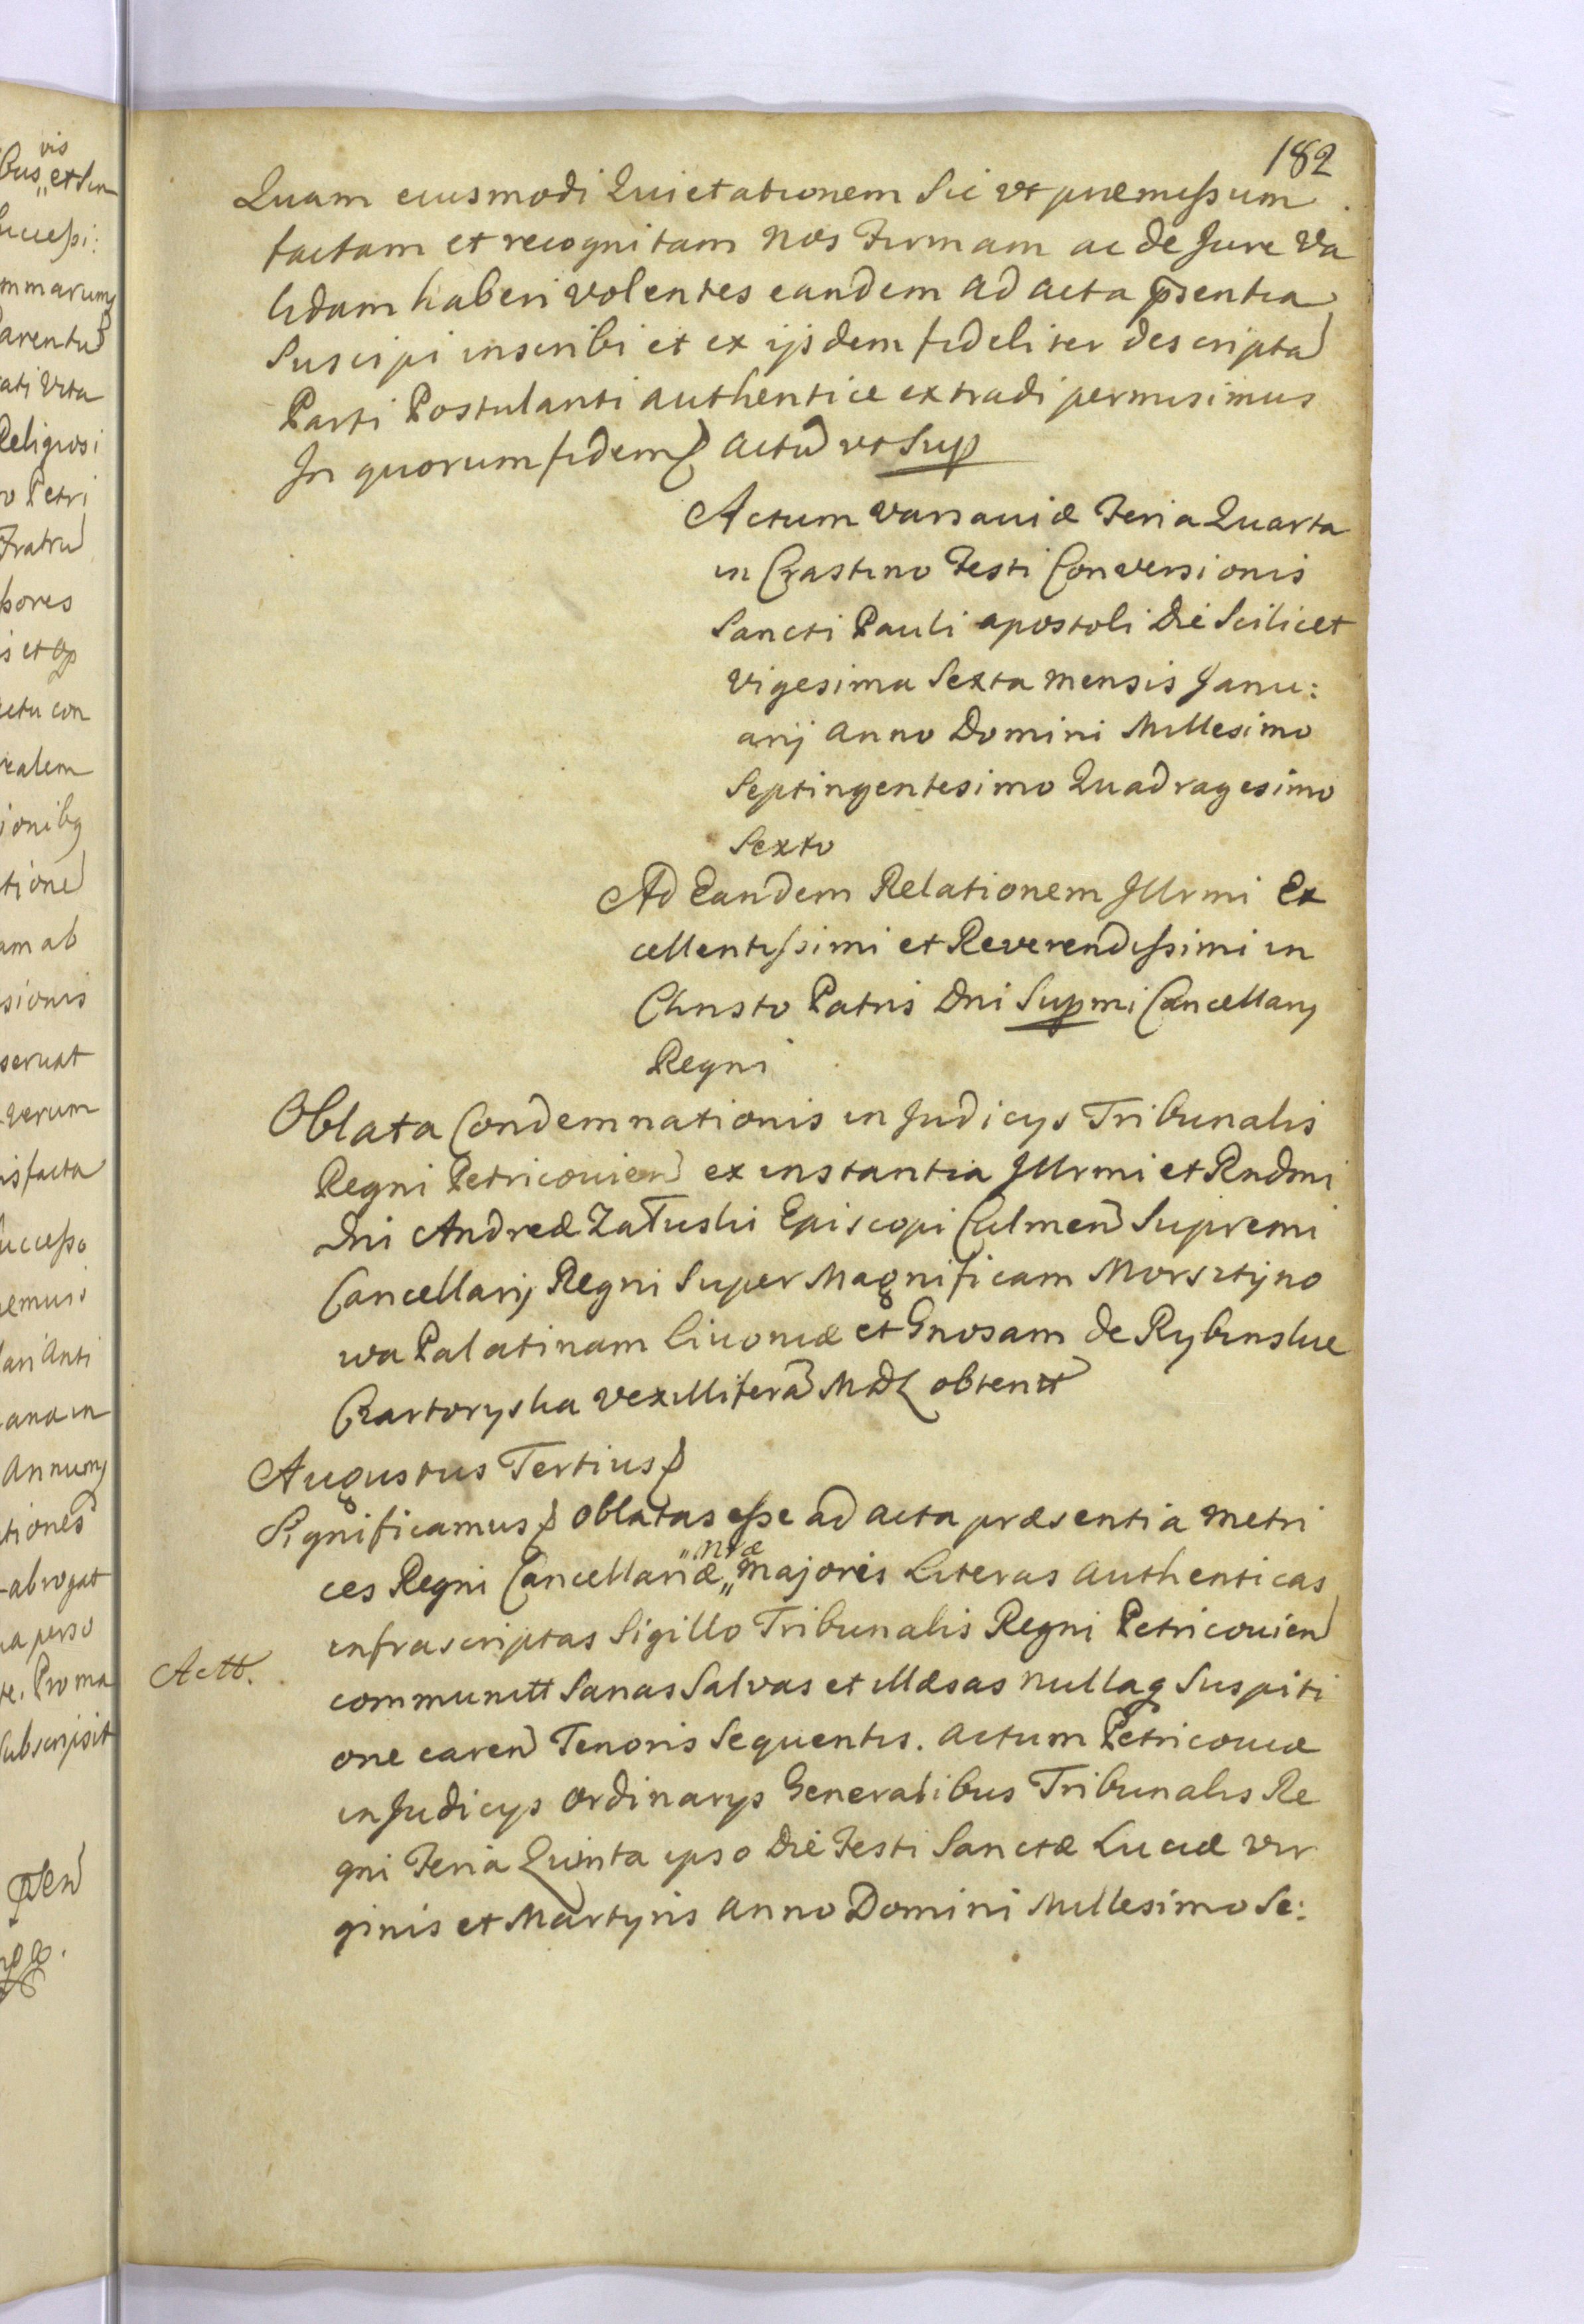 182
Quam eiusmodi Quietationem Sic vt præmissum
factam et recognitam Nos Firmam ac de Jure Va
lidam haberi volentes eandem ad acta p̄sentia
Suscipi inscribi et ex ijsdem fideliter descripta
Parti Postulanti authentice extradi permisimus
In quorum fidem Actũ vt Sup
Actum Varsaviæ Feria Quarta
in Crastino Festi Conversionis
Sancti Pauli apostoli Die Scilicet
vigesima Sexta mensis Janu:
arij anno Domini Millesimo
Septingentesimo Quadragesimo
Sexto
Ad Eandem Relationem Jllrmi Ex
cellentissimi et Reverendissimi in
Christo Patris Dni Supmi Cancellarij
Regni
Oblata Condemnationis in Judicijs Tribunalis
Regni Petricovien ex instantia Jllrmi et Rndmi
Dni Andreæ Załuski Episcopi Culmen Supremi
Cancellarij Regni Super Magnificam Morsztyno
wa Palatinam Livoniæ et Gnosam de Rybinskie
Czartoryska vexillifera MDL obtent
Augustus Tertius
Significamus oblatas esse ad acta præsentia metri
ces Regni Cancellariæ „nræ„ Majoris Literas authenticas
infrascriptas Sigillo Tribunalis Regni Petricovien
Actt.
communitt Sanas Salvas et illæsas nullaq Suspiti
one caren Tenoris Sequentis. Actum Petricoviæ
in Judicijs ordinarijs Generalibus Tribunalis Re
gni Feria Quinta ipso Die Festi Sanctæ Luciæ Vir
ginis et Martyris anno Domini Millesimo Se: